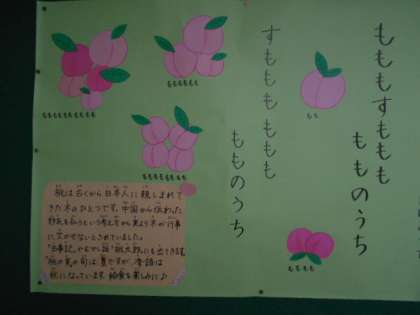 もももすももも
もものうち
すもももももも
もものうち
もも
もももも
桃は古くから日本人に親しまれて
きた木のひとつです。中国から伝わった
邪気を払うという考え方から実より木が行事
に欠かせないとされていました。
「古事記」やむかし話「桃太郎」にも出てきます。
桃の実の旬は夏ですが、季語は
秋になっています。給食を楽しみに♪